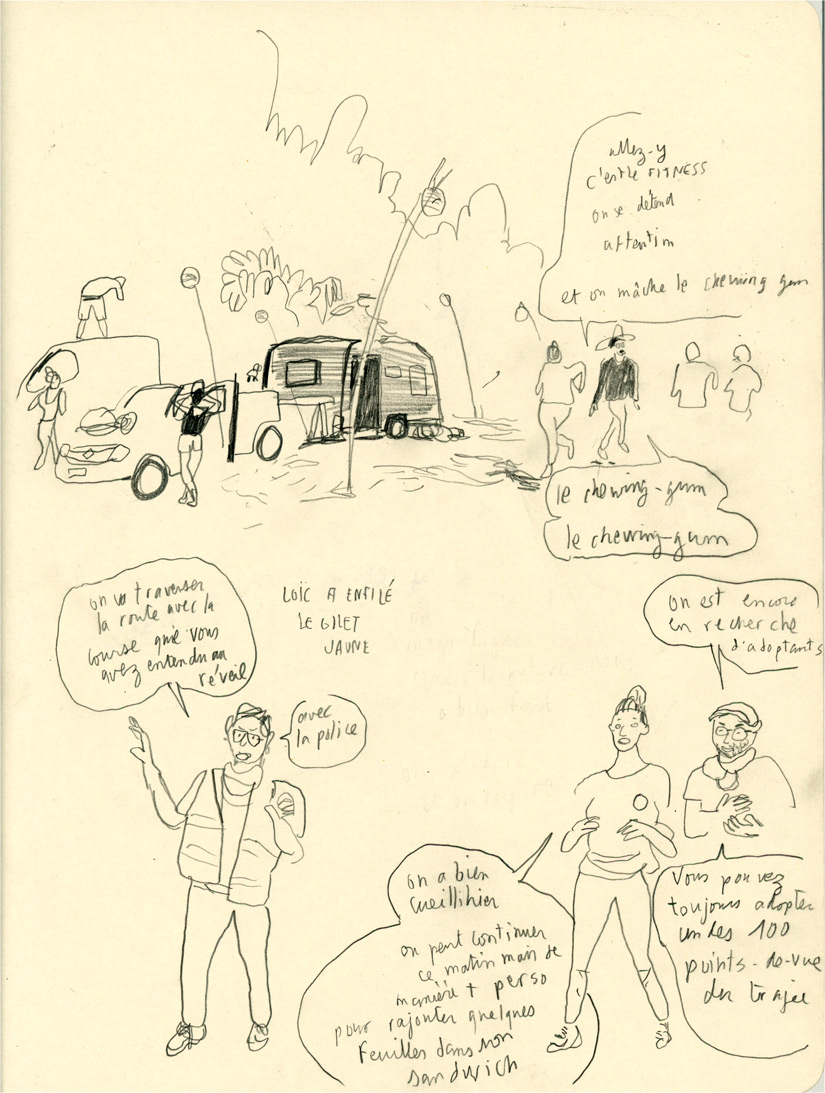 allez-y
c'est le FITNESS
on se détend
attention
et on mâche le chewing gum
le chewing-gum
le chewing-gum
on va traverser
la route avec la
course que vous
avez entendu au
réveil
avec
la police
LOÏC A ENFILÉ
LE GILET
JAUNE
on est encore
en recherche
d'adoptants
on a bien
cueilli hier
on peut continuer
ce matin mais de
manière + perso
pour rajouter quelques
feuilles dans son
sandwich
Vous pouvez
toujours adopter
un des 100
points-de-vue
du trajet